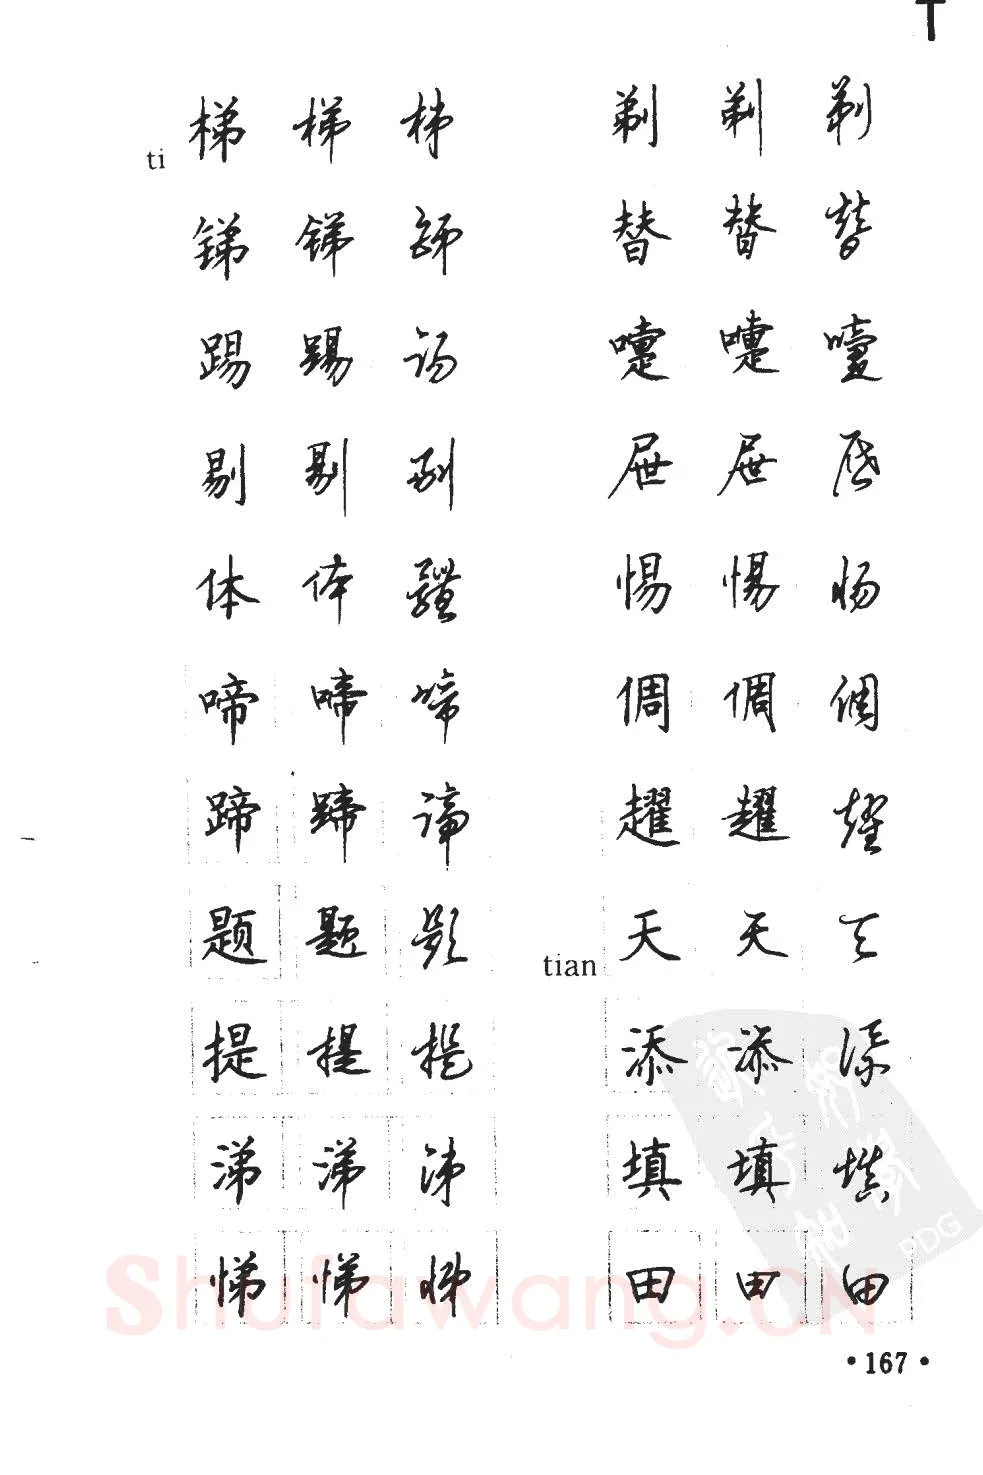 T
ti 梯 梯 梯
锑 锑 锑
踢 踢 踢
剔 剔 剔
体 体 體
啼 啼 啼
蹄 蹄 蹄
题 题 题
提 提 提
涕 涕 涕
悌 悌 悌
剃 剃 剃
替 替 替
嚏 嚏 嚏
屉 屉 屉
惕 惕 惕
倜 倜 倜
趯 趯 趯
tian 天 天 天
添 添 添
填 填 填
田 田 田
PDG
Shufawang.CN
•167•